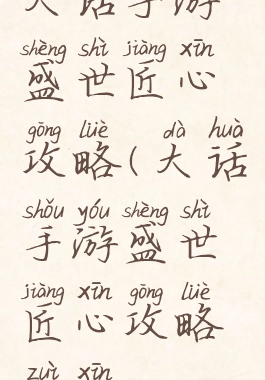 大话手游
shèng shì jiàng xīn
盛世匠心
gōng lüè dà huà
攻略(大话
shǒu yóu shèng shì
手游盛世
jiàng xīn gōng lüè
匠心攻略
zuì xīn